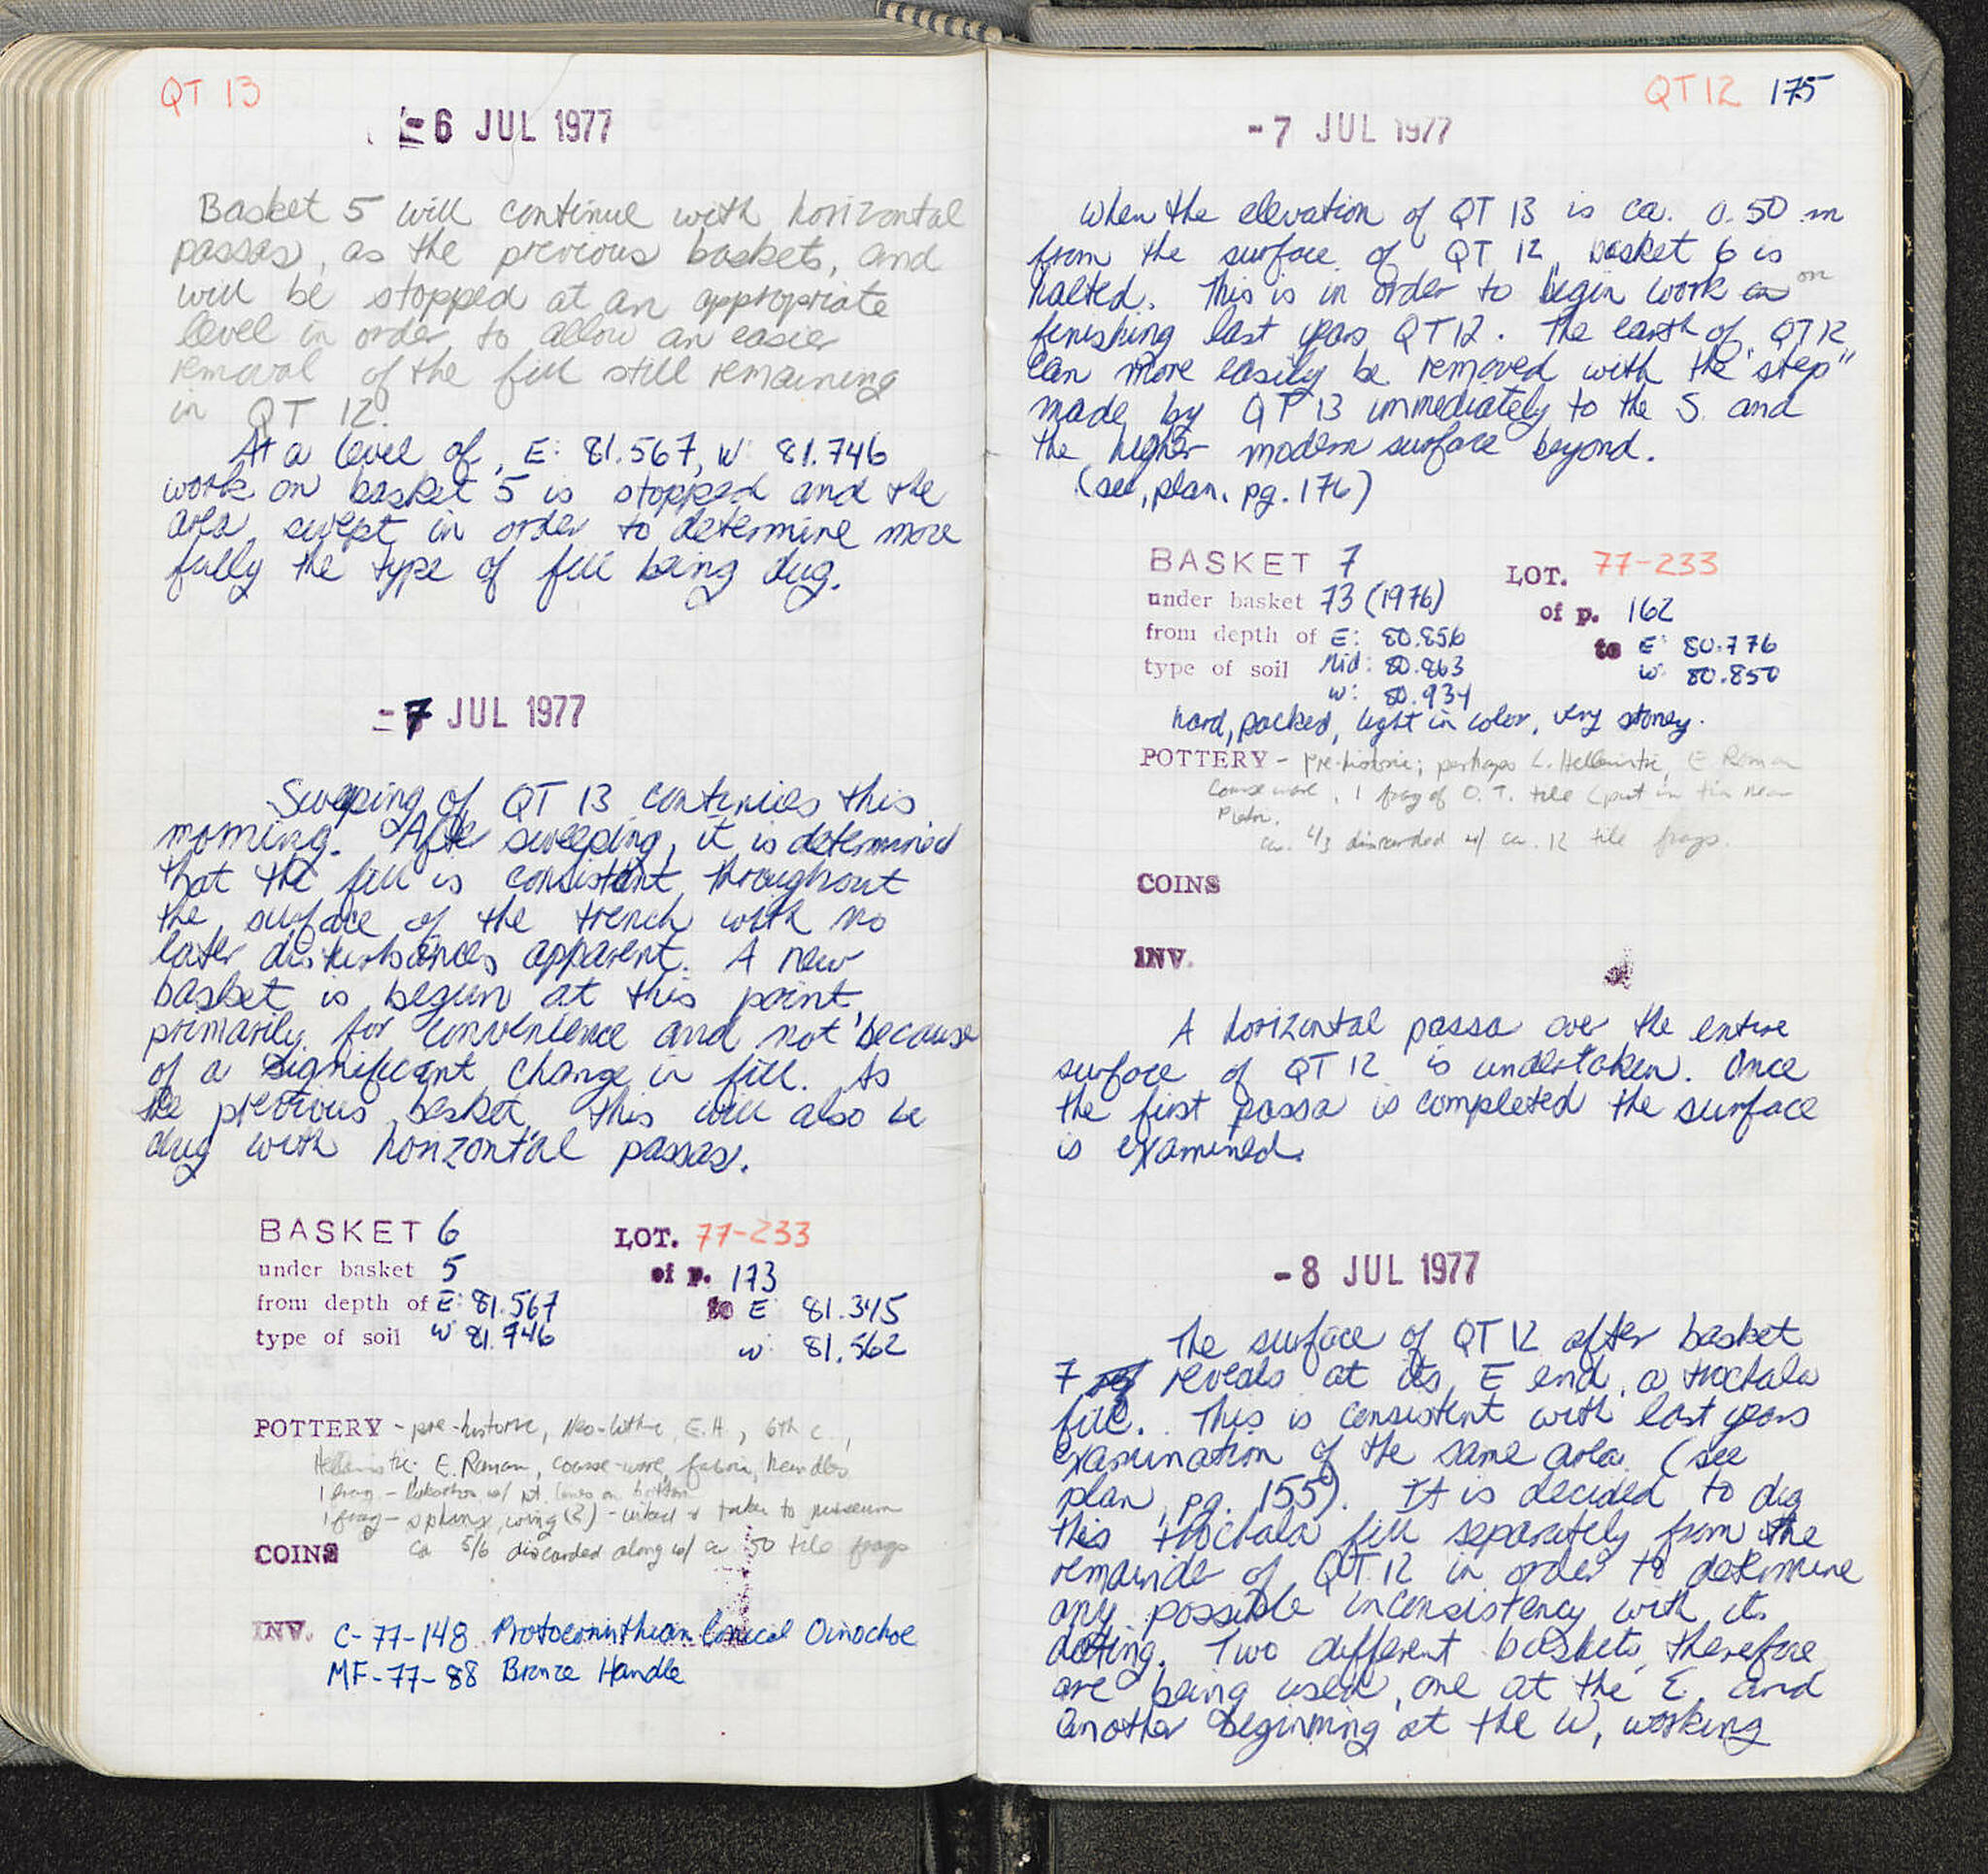 QT 13
- 6 JUL 1977
Basket 5 will continue with horizontal
passas, as the previous baskets, and
will be stopped at an appropriate
level in order to allow an easier
removal of the fill still remaining
in QT 12.
At a level of, E: 81.567, W: 81.746
work on basket 5 is stopped and the
area swept in order to determine more
fully the type of fill being dug.
- 7 JUL 1977
Sweeping of QT 13 continues this
morning. After sweeping, it is determined
that the fill is consistent throughout
the surface of the trench with no
later disturbances apparent. A new
basket is begun at this point
primarily for convenience and not because
of a significant change in fill. As
the previous basket, this will also be
dug with horizontal passas.
BASKET 6 LOT. 77-233
under basket 5 of p. 173
from depth of E: 81.567 to E 81.345
type of soil W 81.746 W: 81.562
POTTERY - pre-historic, Neo-lithic, E.H., 6th c.,
Hellenistic, E. Roman, coarse-ware, handles
1 frag - w/ pt. lines on bottom
1 frag - sphinx, wing (?) - inked & taken to museum
ca 5/6 discarded along w/ ca 50 tile frags
COINS
INV. C-77-148 Protocorinthian Conical Oinochoe
MF-77-88 Bronze Handle
QT 12 175
- 7 JUL 1977
When the elevation of QT 13 is ca. 0.50 m
from the surface of QT 12, basket 6 is
halted. This is in order to begin work on
finishing last years QT 12. The earth of QT 12
can more easily be removed with the "step"
made by QT 13 immediately to the S. and
the higher modern surface beyond.
(see, plan, pg. 176)
BASKET 7 LOT. 77-233
under basket 73 (1976) of p. 162
from depth of E: 80.856 to E: 80.776
type of soil Mid: 80.863 W: 80.850
W: 80.934
hard, packed, light in color, very stoney.
POTTERY - pre-historic; perhaps L. Hellenistic, E. Roman
Coarse ware, 1 frag of O.T. tile (put in tin near
Plain.
ca. 2/3 discarded w/ ca. 12 tile frags.
COINS
INV.
A horizontal passa over the entire
surface of QT 12 is undertaken. Once
the first passa is completed the surface
is examined.
- 8 JUL 1977
The surface of QT 12 after basket
7 reveals at its E end, a trochala
fill. This is consistent with last years
examination of the same area. (see
plan, pg. 155). It is decided to dig
this trochala fill separately from the
remainder of QT 12 in order to determine
any possible inconsistency with its
dating. Two different baskets, therefore
are being used, one at the E. and
another beginning at the W, working